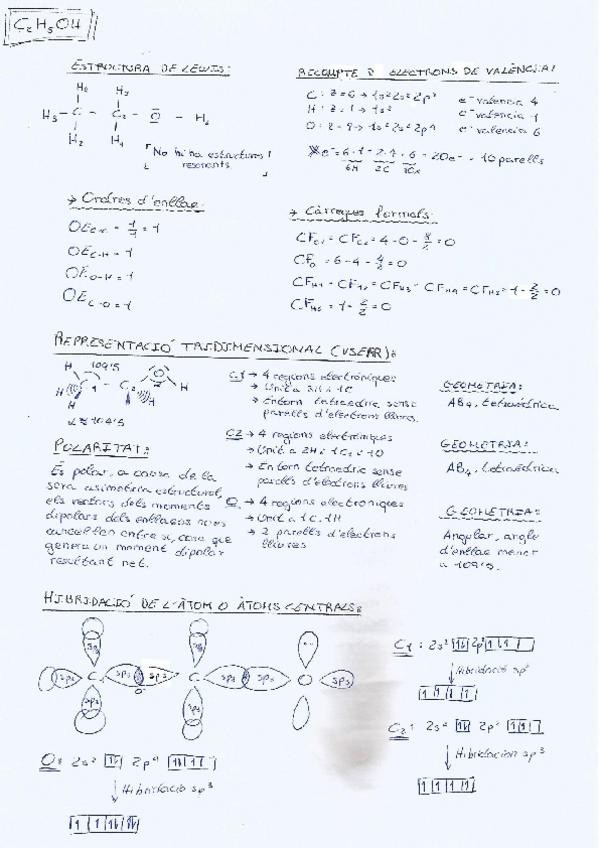 C₂H₅OH
ESTRUCTURA DE LEWIS:
H₃ - C₁ - C₂ - O - H₆
H₂
No hi ha estructures
ressonants
RECOMPTE D'ELECTRONS DE VALÈNCIA:
C: Z=6 → 1s²2s²2p² e⁻ valencia 4
H: Z=1 → 1s¹ e⁻ valencia 1
O: Z=8 → 1s²2s²2p⁴ e⁻ valencia 6
e⁻ = 6·1 + 2·4 + 6 = 20e⁻ → 10 parells
6H 2C
→ Ordres d'enllaç:
OE C-C = = 1
OE C-H = 1
OE O-H = 1
OE C-O = 1
→ Càrregues formals:
CF C₁ = CF C₂ = 4 - 0 - 8/2 = 0
CF O = 6 - 4 - 4/2 = 0
CF H₁ = CF H₂ = CF H₃ = CF H₄ = CF H₅ = 1 - 2/2 = 0
CF H₆ = 1 - 2/2 = 0
REPRESENTACIÓ TRIDIMENSIONAL (VSEPR):
H 109'5
H C₁ C₂ O H
H H
α ≈ 104'5
C1 → 4 regions electròniques
→ Unit a 3H i 1C
→ Entorn tetraedric sense
parells d'electrons lliures.
GEOMETRIA:
AB₄, tetraèdrica
C2 → 4 regions electròniques
→ Unit a 2H i 1C i 1O
→ Entorn tetraedric sense
parells d'electrons lliures
GEOMETRIA:
AB₄, tetraèdrica
O → 4 regions electroniques
→ Unit a 1C i 1H
→ 2 parells d'electrons
lliures
GEOMETRIA:
Angular, angle
d'enllaç menor
a 109'5.
POLARITAT:
És polar, a causa de la
seva asimetria estructural,
els vectors dels moments
dipolars dels enllaços no es
cancel·len entre si, cosa que
genera un moment dipolar
resultant net.
HIBRIDACIÓ DE L'ÀTOM O ÀTOMS CENTRALS:
sp₃ sp₃
sp₃ C sp₃ sp₃ C sp₃ sp₃ O sp₃
C1: 2s² 2p²
Hibridació sp³
C2: 2s² 2p²
Hibridacion sp³
O: 2s² 2p⁴
Hibridació sp³